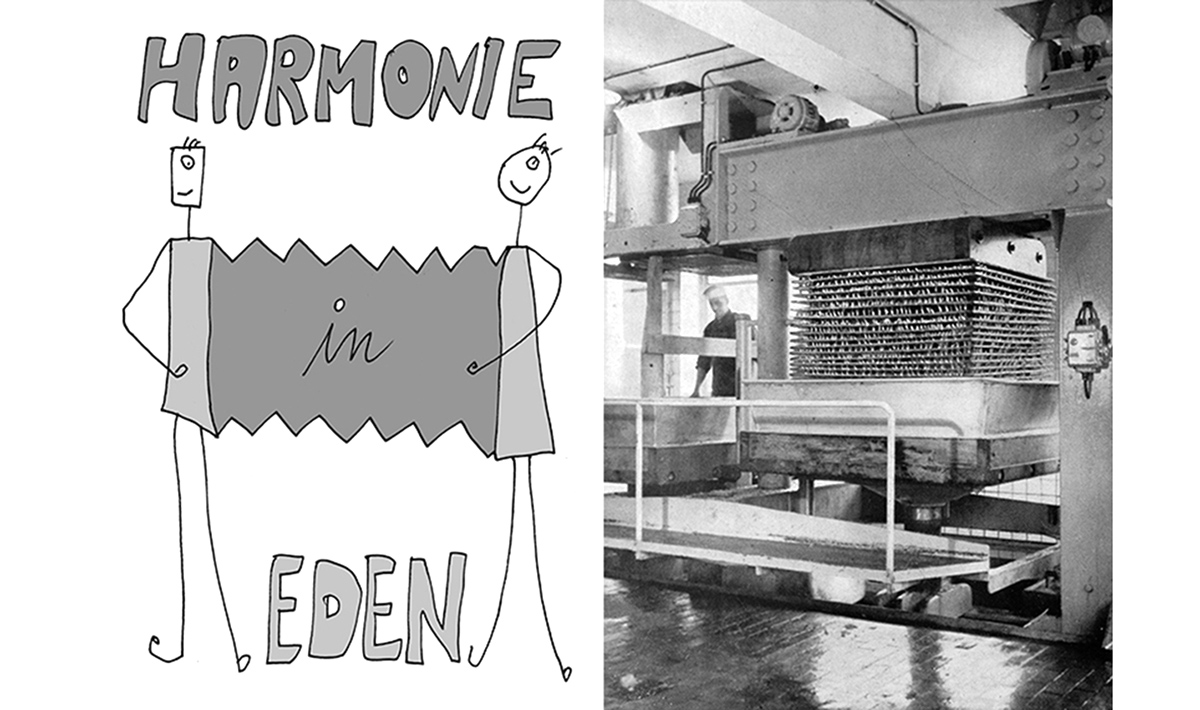 HARMONIE
in
EDEN